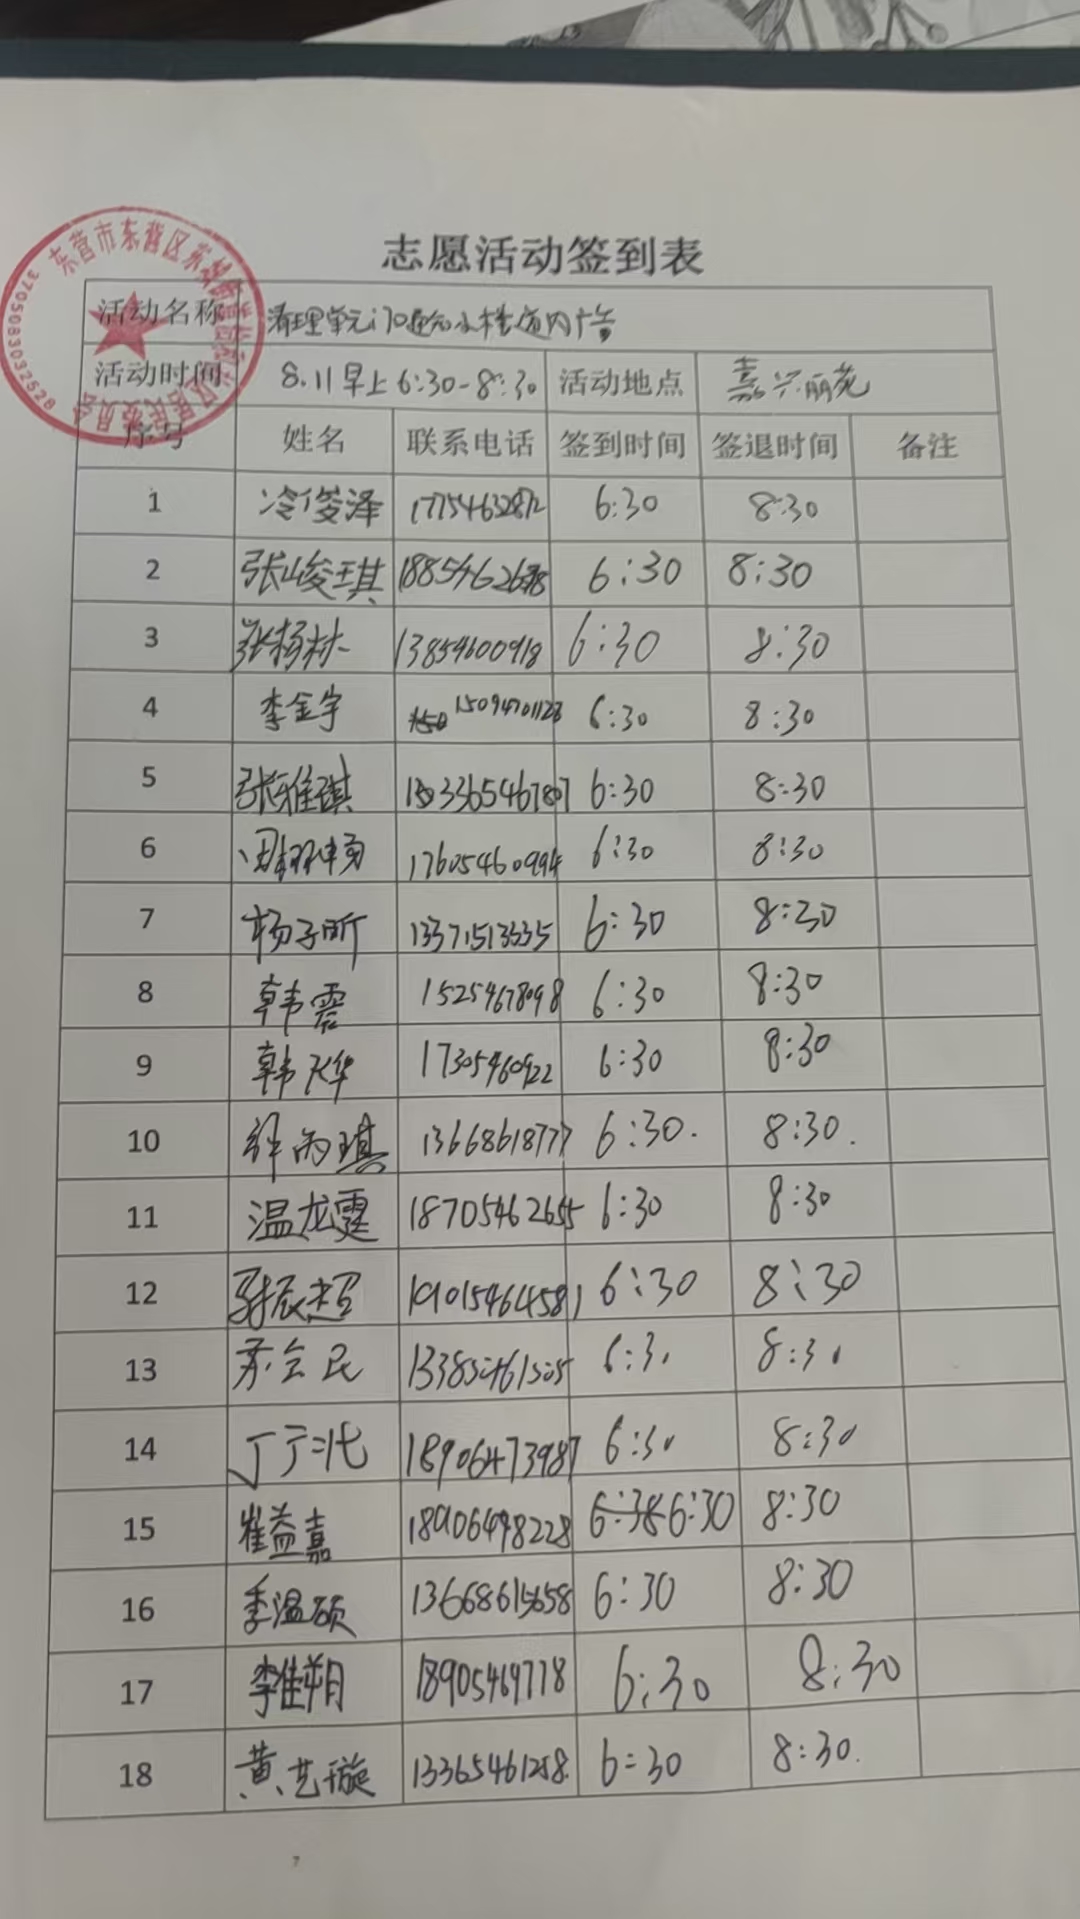 志愿活动签到表
活动名称 清理单元门口 楼道内广告
活动时间 8.11早上6:30-8:30 活动地点 嘉兴丽苑
序号 姓名 联系电话 签到时间 签退时间 备注
1 冷俊泽 17754632872 6:30 8:30
2 张峻琪 6:30 8:30
3 张杨林 13854600918 6:30 8:30
4 李金宇 15094701128 6:30 8:30
5 张雅琪 6:30 8:30
6 17605460994 6:30 8:30
7 杨子昕 13371513335 6:30 8:30
8 韩震 15254678098 6:30 8:30
9 韩 17305460922 6:30 8:30
10 丙琪 13668618777 6:30. 8:30.
11 温龙霆 18705462655 6:30 8:30
12 辰超 19015464581 6:30 8:30
13 民 6:30 8:30
14 丁 18906473987 6:30 8:30
15 崔益嘉 18906498228 6:30 8:30
16 季温硕 13668615658 6:30 8:30
17 李佳朔 18905469778 6:30 8:30
18 黄艺璇 13365461258 6:30 8:30.
东营市东营区
3705083032528
7